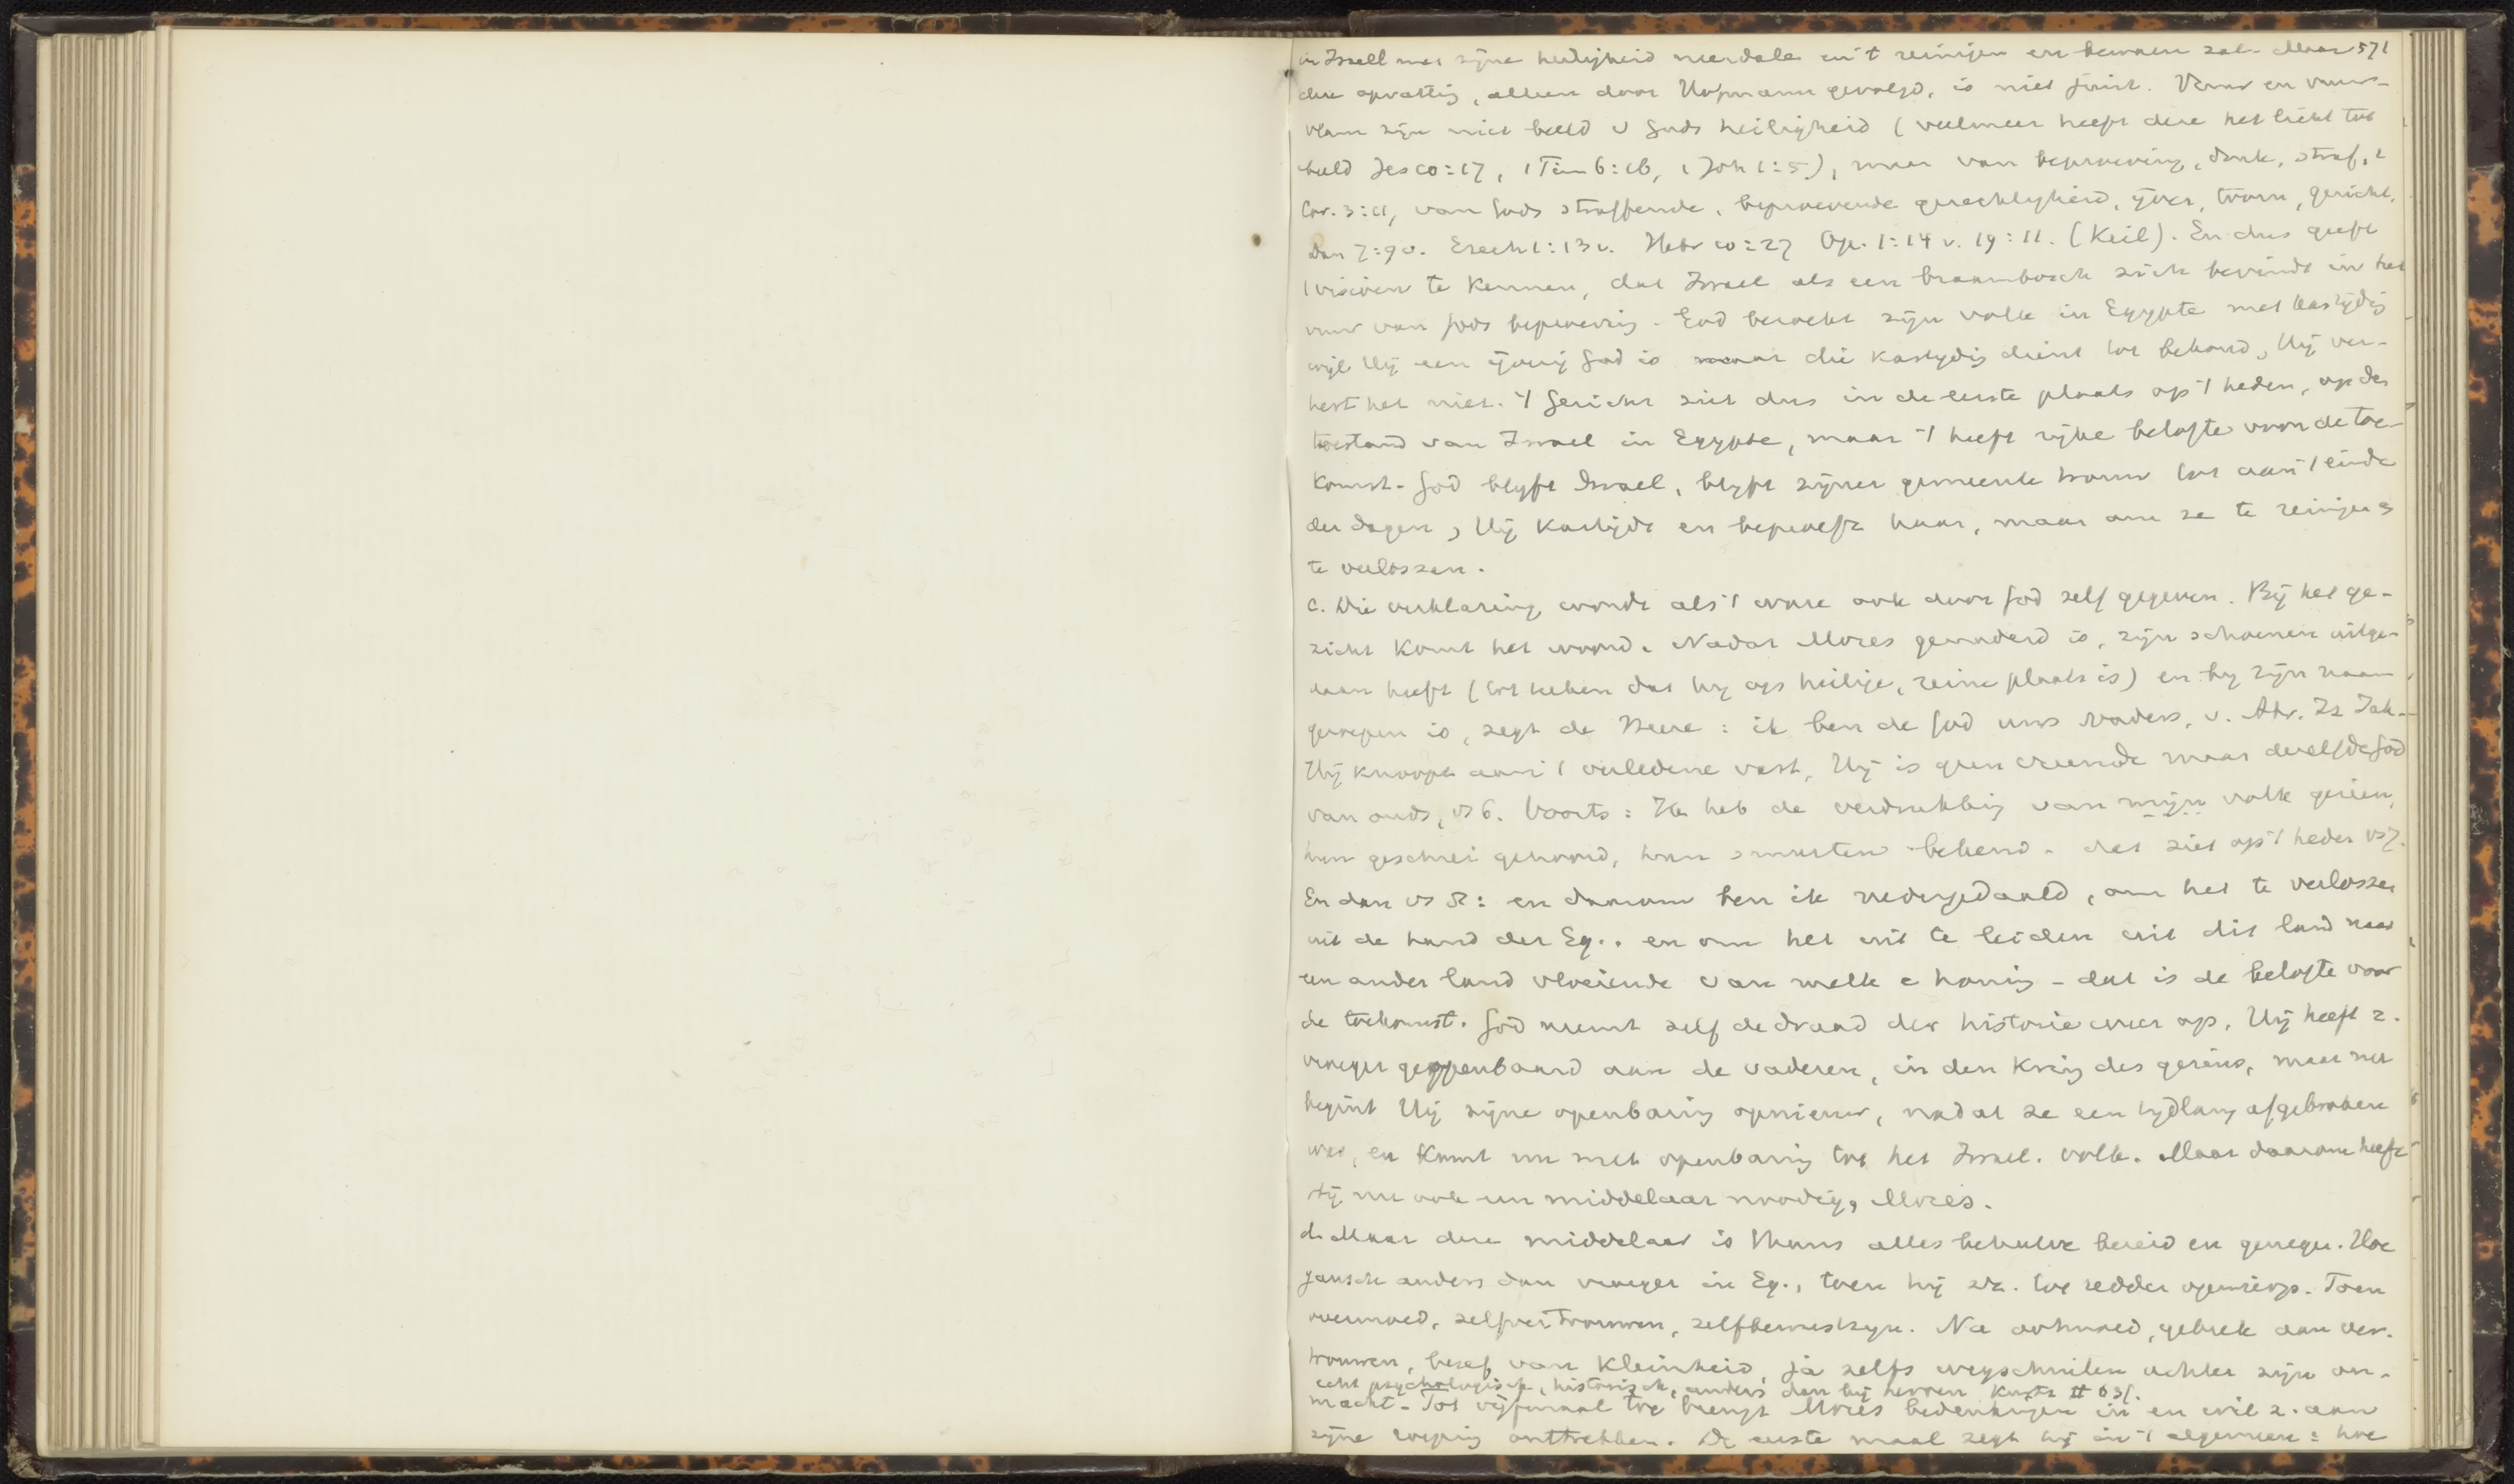 in Israël met zijne heiligheid neerdale en 't reinigen en bewaren zal. Maar 571
deze opvatting, alleen door Hofmann gevolgd, is niet juist. Vuur en vuur-
vlam zijn niet beeld v Gods heiligheid (veelmeer heeft deze het licht tot
beeld Jes 10:17, 1 Tim 6:16, 1 Joh 1:5), maar van beproeving, straf, 1
Cor. 3:11, van Gods straffende, beproevende gerechtigheid, ijver, toorn, gericht,
Dan 7:9v. Ezech 1:13v. Hebr 10:27 Op. 1:14 v. 19:11. (Keil). En dus geeft
't visioen te kennen, dat Israel als een braambosch zich bevindt in het
vuur van Gods beproeving. God bezoekt zijn volk in Egypte met kastijding
wijl Hij een ijverig God is maar die kastijding dient tot behoud, Hij ver-
teert het niet. 't Gezicht ziet dus in de eerste plaats op 't heden, op den
toestand van Israel in Egypte, maar 't heeft rijke belofte voor de toe-
komst. God blijft Israel, blijft zijner gemeente trouw tot aan 't einde
der dagen, Hij kastijdt en beproeft haar, maar om ze te reinigen &
te verlossen.
c. Die verklaring wordt als 't ware ook door God zelf gegeven. Bij het ge-
zicht komt het woord. Nadat Mozes genaderd is, zijn schoenen uitge-
daan heeft (tot teken dat hij op heilige, reine plaats is) en bij zijn naam
geroepen is, zegt de Heere: ik ben de God uws vaders, v. Abr. Iz Jak.
Hij knoopt aan 't verledene vast, Hij is geen vreemde maar dezelfde God
van ouds, vs 6. Voorts: Ik heb de verdrukking van mijn volk gezien,
hun geschrei gehoord, hun smarten bekend. dat ziet op 't heden vs 7.
En dan vs 8: en daarom ben ik nedergedaald, om het te verlossen
uit de hand der Eg.. en om het uit te leiden uit dit land naar
een ander land vloeiende van melk e honig - dat is de belofte voor
de toekomst. God neemt zelf de draad der historie weer op. Hij heeft z.
vroeger geopenbaard aan de vaderen, in den kring des gezins, maar nu
begint Hij zijne openbaring opnieuw, nadat ze een tijdlang afgebroken
was, en komt nu met openbaring tot het Israel. volk. Maar daarom heeft
Hij nu ook een middelaar noodig, Mozes.
d. Maar deze middelaar is thans alles behalve bereid en genegen. Hoe
gansch anders dan vroeger in Eg., toen hij zich. tot redder opwierp. Toen
overmoed, zelfvertrouwen, zelfbewustzijn. Nu ootmoed, gebrek aan ver-
trouwen, besef van kleinheid, ja zelfs wegschuilen achter zijn on-
echt psychologisch, historisch, anders dan bij heroen II 63/.
macht. Tot vijfmaal toe brengt Mozes bedenkingen in en wil z. aan
zijne roeping onttrekken. De eerste maal zegt hij in 't algemeen: hoe